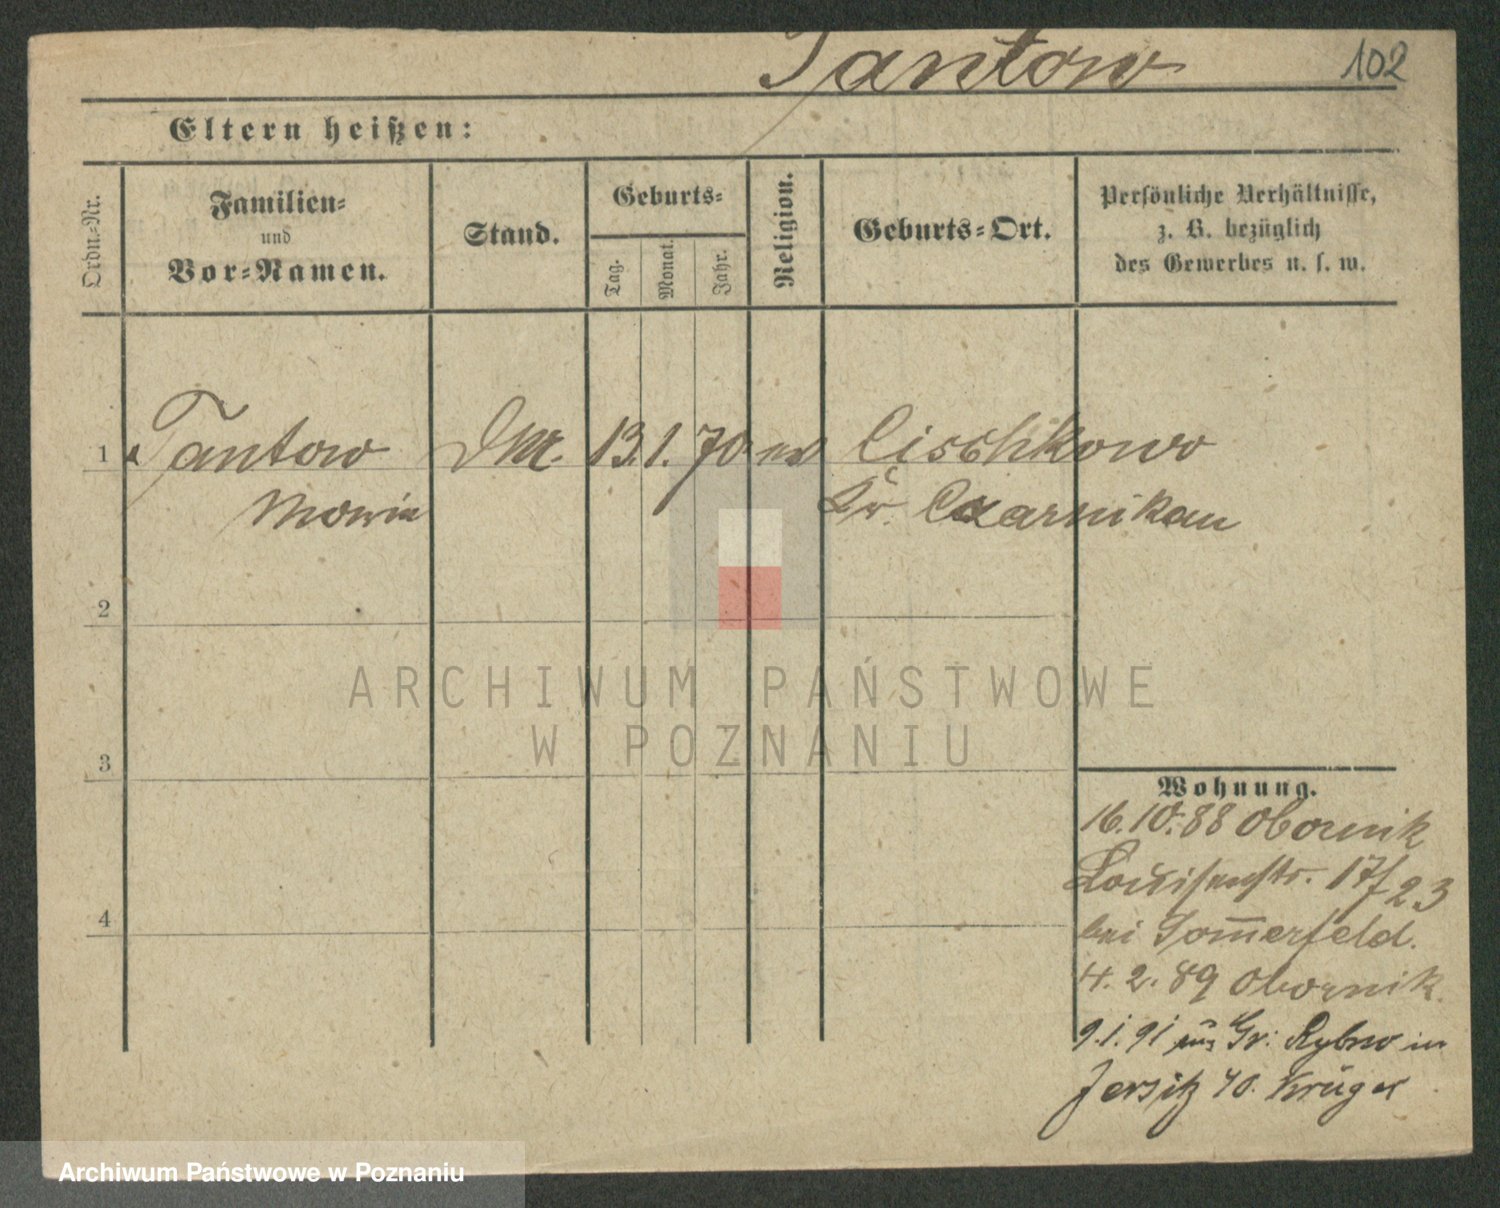 Tantow
102
Eltern heißen:
Ordn.-Nr.
Familien-
und
Vor-Namen.
Stand.
Geburts-
Tag.
Monat.
Jahr.
Religion.
Geburts-Ort.
Persönliche Verhältnisse,
z. B. bezüglich
des Gewerbes u. s. w.
1 Tantow 13. 1. 70 Cischkowo
Maria Kr. Czarnikau
2
ARCHIWUM PAŃSTWOWE
W POZNANIU
3
Wohnung.
16.10.88 Obornik
Louisenstr. 17/23
bei Som̅erfeld.
4.2.89 Obornik.
9.1.91 aus Gr. Rybno in
Jersitz 40. Krüger
4
Archiwum Państwowe w Poznaniu